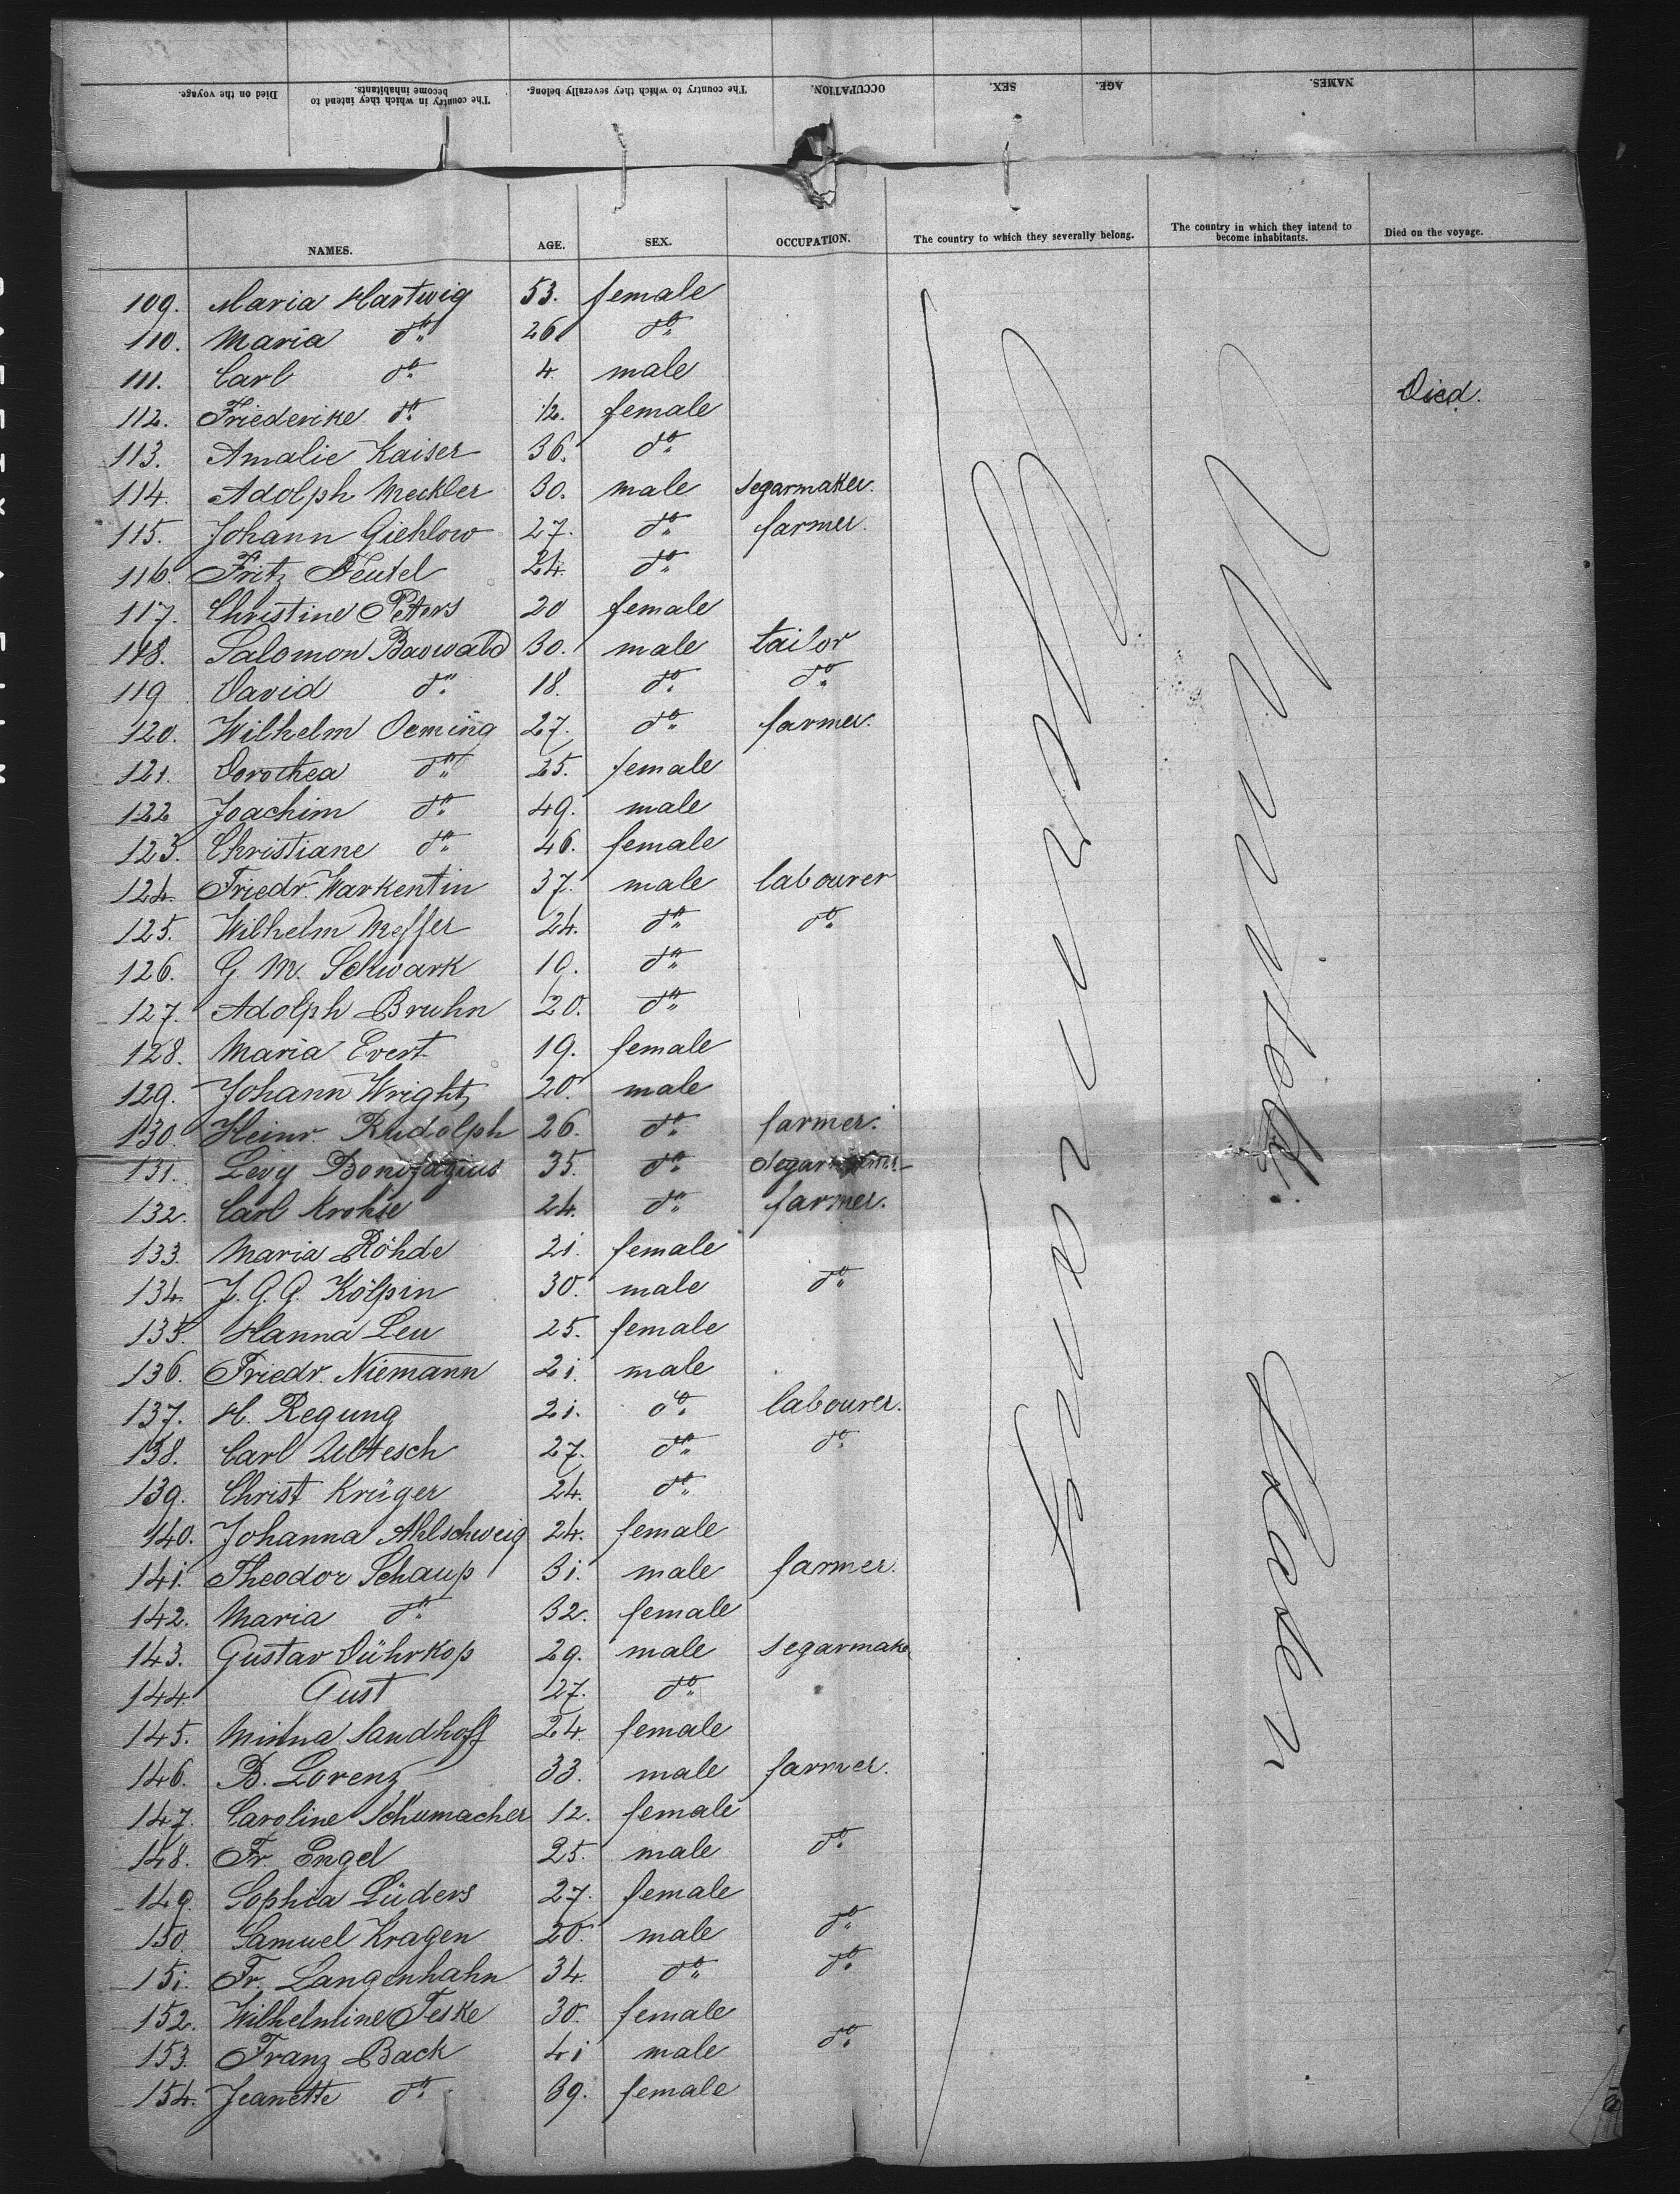 Died on the voyage. The country in which they intend to become inhabitants. The country to which they severally belong. OCCUPATION. SEX. AGE. NAMES.
NAMES. AGE. SEX. OCCUPATION. The country to which they severally belong. The country in which they intend to become inhabitants. Died on the voyage.
109. Maria Hartwig 53. female
110. Maria do 26. do
111. Carl do 4. male
112. Friederike do 1/2. female Died.
113. Amalie Kaiser 36. do
114. Adolph Meckler 30. male Segarmaker.
115. Johann Giehlow 27. do farmer.
116. Fritz Teutel 24. do
117. Christine Peters 20 female
118. Salomon Baowald 30. male tailor
119 David do 18. do do
120. Wilhelm Oeming 27. do farmer.
121. Dorothea do 25. female
122 Joachim do 49. male
123. Christiane do 46. female
124. Friedr. Warkentin 37. male labourer
125. Wilhelm Meffer 24. do do
126. G. M. Schwark 19. do
127. Adolph Bruhn 20. do
128. Maria Evert 19. female
129. Johann Wright 20. male
130. Heinr. Rudolph 26. do farmer.
131. Levy Bonifazius 35. do
132. Carl Krohse 24. do farmer.
133. Maria Röhde 21. female
134. J. G. G. Kölpin 30. male do
135. Hanna Leu 25. female
136. Friedr. Niemann 21. male
137. H. Regung 21. do labourer.
138. Carl Ultesch 27. do do
139. Christ Krüger 24. do
140. Johanna Ahlschweig 24. female
141. Theodor Schaup 31. male farmer.
142. Maria do 32. female
143. Gustav Dührkop 29. male Segarmake
144. Gust 27. do
145. Minna Sandhoff 24. female
146. B. Lorenz 33. male farmer.
147. Caroline Schumacher 12. female
148. Fr. Engel 25. male do
149. Sophia Lüders 27. female
150. Samuel Kragen 20. male do
151. Fr. Langenhahn 34. do do
152. Wilhelmine Teske 30. female
153. Franz Back 41 male do
154. Jeanette do 39. female
Germany
United Staten